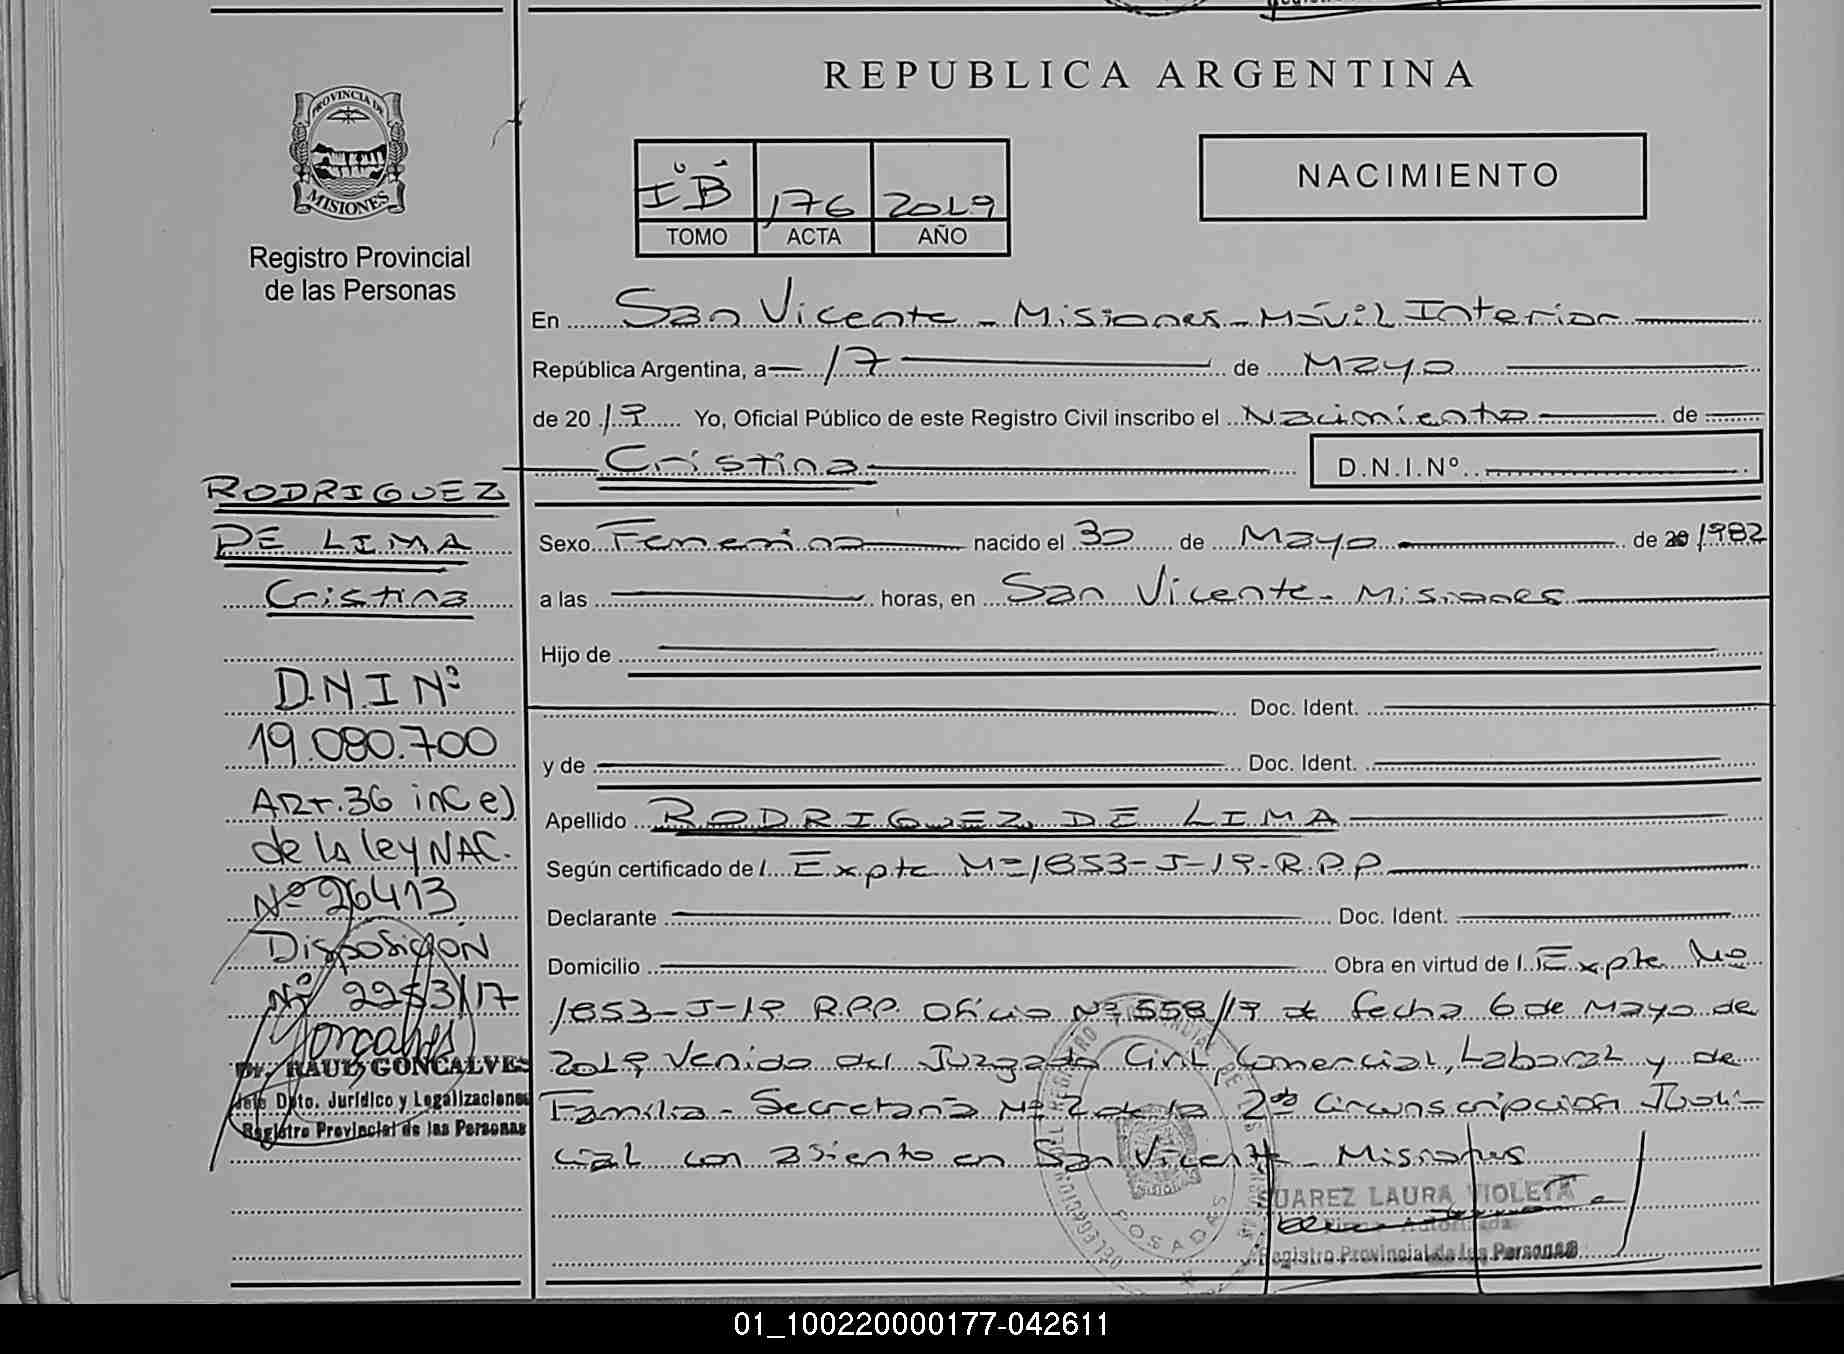 REPUBLICA ARGENTINA
PROVINCIA DE
MISIONES
Registro Provincial
de las Personas
IºB 176 2019
TOMO ACTA AÑO
NACIMIENTO
En San Vicente - Misiones - Móvil Interior
República Argentina, a 17 de Mayo
de 20 19 Yo, Oficial Público de este Registro Civil inscribo el Nacimiento de
Cristina D.N.I.Nº
Sexo Femenino nacido el 30 de Mayo de 20 1982
a las horas, en San Vicente - Misiones
Hijo de
Doc. Ident.
y de Doc. Ident.
Apellido RODRIGUEZ DE LIMA
Según certificado de l. Expte Nº 1853-J-19-R.P.P.
Declarante Doc. Ident.
Domicilio Obra en virtud de l. Expte Nº
1853-J-19 R.P.P. Oficio Nº 558/19 de fecha 6 de Mayo de
2019 Venido del Juzgado Civil, Comercial, Laboral y de
Familia - Secretaría Nº 2 de la 2da Circunscripción Judi-
cial con asiento en San Vicente - Misiones
SUAREZ LAURA VIOLETA
Firma Autorizada
Registro Provincial de las Personas
POSADAS
RODRIGUEZ
DE LIMA
Cristina
D.N.I Nº
19.080.700
Art.36 inc e)
de la ley NAC.
Nº 26413
Disposición
Nº 2253/17
Dr. RAUL GONCALVES
Jefe Dpto. Jurídico y Legalizaciones
Registro Provincial de las Personas
01_100220000177-042611